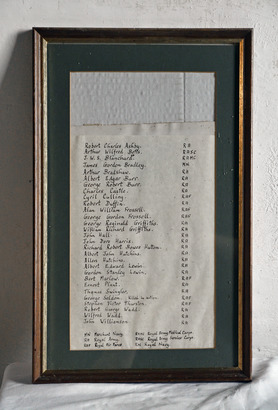 Robert Charles Ashby. RA
Arthur Wilfred Betts. RASC
J.W.S. Blanchard. RAMC
James Gordon Bradley. MN
Arthur Bradshaw. RA
Albert Edgar Burr. RA
George Robert Burr. RA
Charles Castle. RA
Cyril Culling RAF
Robert Duffin. RA
Alan William Frossell. RAF
George Gordon Frossell. RAF
George Reginald Griffiths. RA
William Richard Griffiths. RA
John Hall. RA
John Dore Harris. RA
Richard Robert Howes Hutton. RA
Albert John Hutchins. RA
Allen Hutchins. RA
Albert Edward Lewin. RA
Gordon Stanley Lewin. RA
Bert Marlow. RAF
Ernest Plant. RA
Thomas Swingler. RA
George Seldon. Killed in action. RAF
Stephen Victor Thurston. RAF
Robert George Wadd. RA
Wilfred Wadd. RA
John Williamson RA
MN Merchant Navy. RAMC Royal Army Medical Corps
RA Royal Army. RASC Royal Army Service Corps
RAF Royal Air Force. RN Royal Navy.